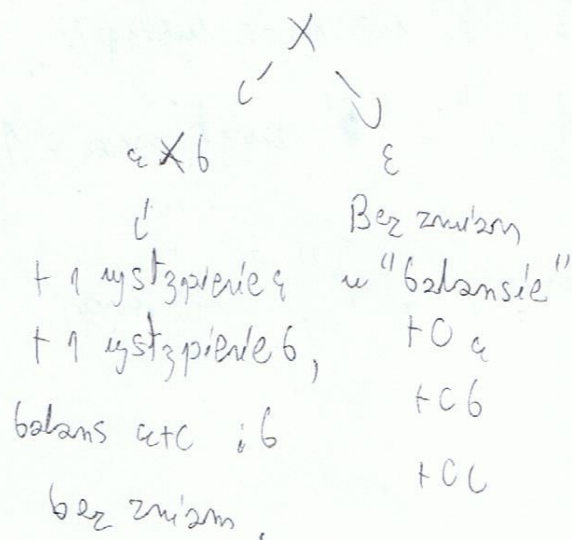 X
a X b
ε
+ 1 wystąpienie a
+ 1 wystąpienie b,
balans a+c i b
bez zmian.
Bez zmian
w "balansie"
+0 a
+0 b
+0 c